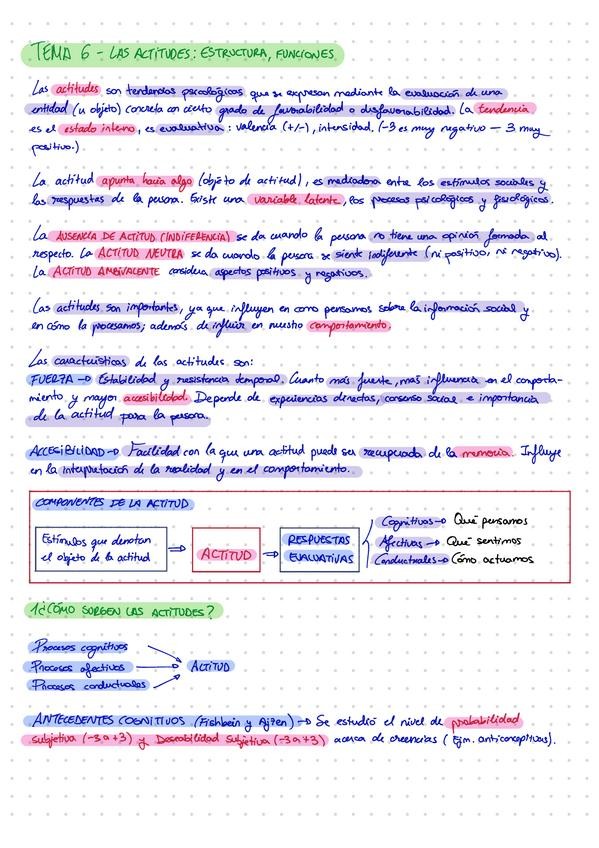 TEMA 6 - LAS ACTITUDES: ESTRUCTURA, FUNCIONES
Las actitudes son tendencias psicológicas que se expresan mediante la evaluación de una
entidad (u objeto) concreta con cierto grado de favorabilidad o disfavorabilidad. La tendencia
es el estado interno, es evaluativa: valencia (+/-), intensidad. (-3 es muy negativo — 3 muy
positivo.)
La actitud apunta hacia algo (objeto de actitud), es mediadora entre los estímulos sociales y
las respuestas de la persona. Existe una variable latente, los procesos psicológicos y fisiológicos.
La AUSENCIA DE ACTITUD (INDIFERENCIA) se da cuando la persona no tiene una opinión formada al
respecto. La ACTITUD NEUTRA se da cuando la persona se siente indiferente (ni positivo, ni negativo).
La ACTITUD AMBIVALENTE considera aspectos positivos y negativos.
Las actitudes son importantes, ya que influyen en como pensamos sobre la información social y
en cómo la procesamos; además de influir en nuestro comportamiento.
Las características de las actitudes son:
FUERZA → Estabilidad y resistencia temporal. Cuanto más fuerte, más influencia en el comporta-
miento y mayor accesibilidad. Depende de experiencias directas, consenso social e importancia
de la actitud para la persona.
ACCESIBILIDAD → Facilidad con la que una actitud puede ser recuperada de la memoria. Influye
en la interpretación de la realidad y en el comportamiento.
COMPONENTES DE LA ACTITUD
Estímulos que denotan
el objeto de la actitud
⇒ ACTITUD ⇒
RESPUESTAS
EVALUATIVAS
Cognitivas → Qué pensamos
Afectivas → Que sentimos
Conductuales → Cómo actuamos
1. ¿CÓMO SURGEN LAS ACTITUDES?
Procesos cognitivos
Procesos afectivos → ACTITUD
Procesos conductuales
ANTECEDENTES COGNITIVOS (Fishbein y Ajzen) → Se estudió el nivel de probabilidad
subjetiva (-3 a +3) y Deseabilidad Subjetiva (-3 a +3) acerca de creencias (Ejm. anticonceptivos).